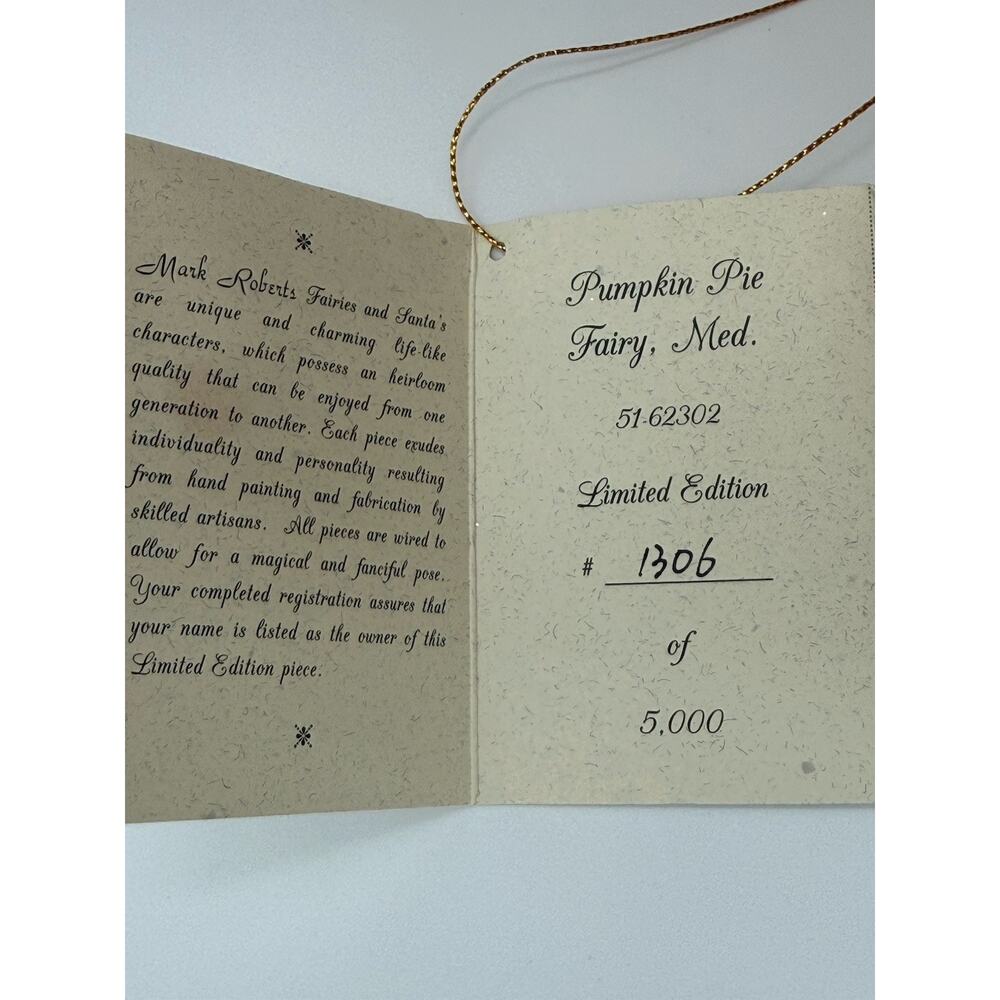 Mark Roberts Fairies and Santa's
are unique and charming life-like
characters, which possess an heirloom
quality that can be enjoyed from one
generation to another. Each piece exudes
individuality and personality resulting
from hand painting and fabrication by
skilled artisans. All pieces are wired to
allow for a magical and fanciful pose.
Your completed registration assures that
your name is listed as the owner of this
Limited Edition piece.
Pumpkin Pie
Fairy, Med.
51-62302
Limited Edition
# 1306
of
5,000